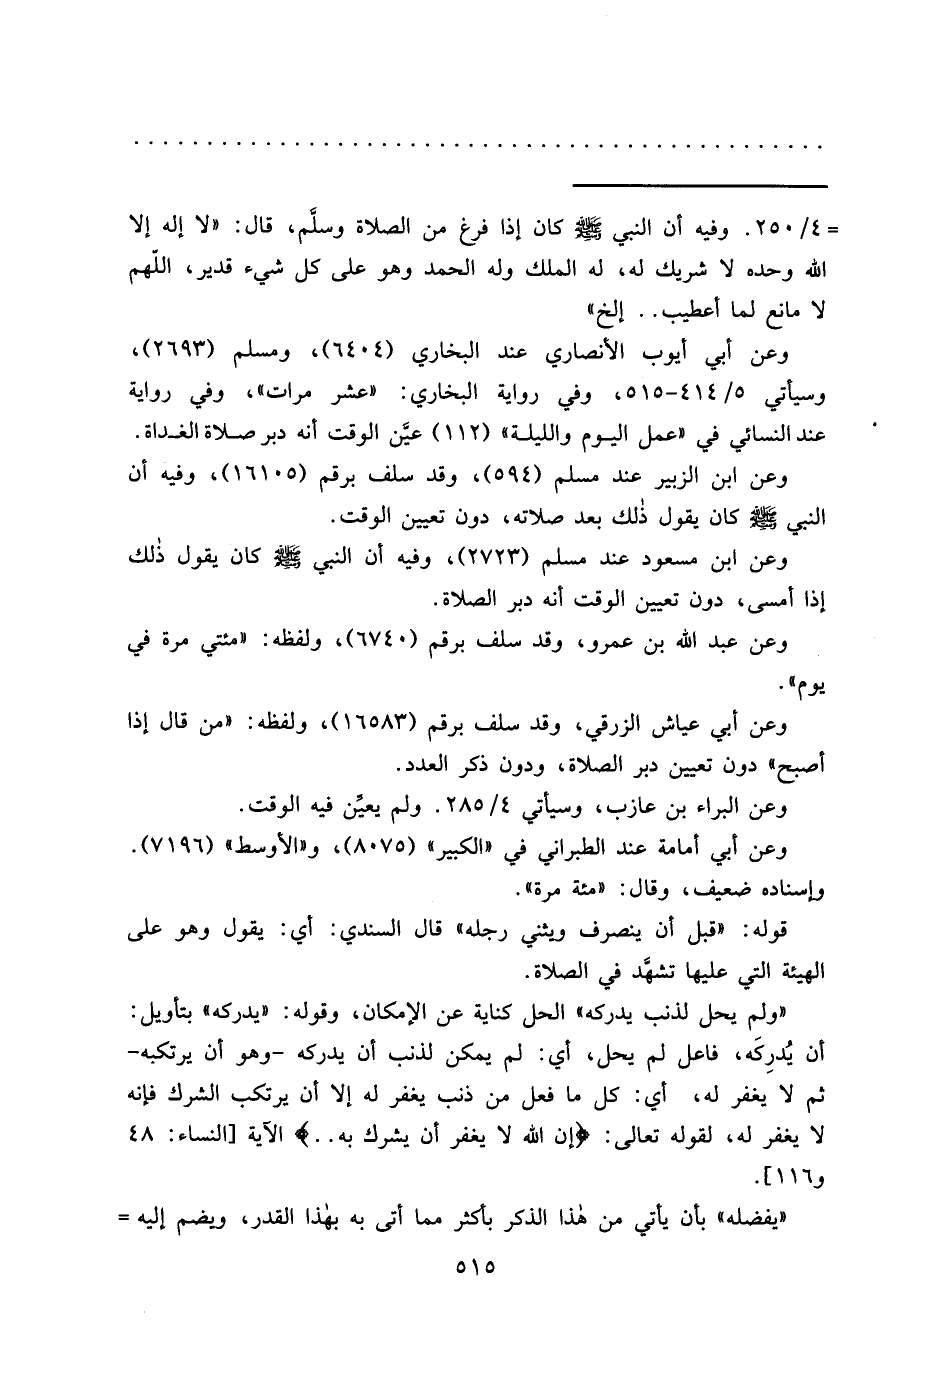 . . . . . . . . . . . . . . . . . . . . . . . . . . . . . . . . . . . . . . . . . . . . . . . .
= ٢٥٠/٤. وفيه أن النبي ﷺ كان إذا فرغ من الصلاة وسلَّم، قال: «لا إله إلا
الله وحده لا شريك له، له الملك وله الحمد وهو على كل شيء قدير، اللّهم
لا مانع لما أعطيب.. إلخ»
وعن أبي أيوب الأنصاري عند البخاري (٦٤٠٤)، ومسلم (٢٦٩٣)،
وسيأتي ٤١٤/٥-٥١٥، وفي رواية البخاري: «عشر مرات»، وفي رواية
عند النسائي في «عمل اليوم والليلة» (١١٢) عيَّن الوقت أنه دبر صلاة الغداة.
وعن ابن الزبير عند مسلم (٥٩٤)، وقد سلف برقم (١٦١٠٥)، وفيه أن
النبي ﷺ كان يقول ذٰلك بعد صلاته، دون تعيين الوقت.
وعن ابن مسعود عند مسلم (٢٧٢٣)، وفيه أن النبي ﷺ كان يقول ذٰلك
إذا أمسى، دون تعيين الوقت أنه دبر الصلاة.
وعن عبد الله بن عمرو، وقد سلف برقم (٦٧٤٠)، ولفظه: «مئتي مرة في
يوم».
وعن أبي عياش الزرقي، وقد سلف برقم (١٦٥٨٣)، ولفظه: «من قال إذا
أصبح» دون تعيين دبر الصلاة، ودون ذكر العدد.
وعن البراء بن عازب، وسيأتي ٢٨٥/٤. ولم يعيَّن فيه الوقت.
وعن أبي أمامة عند الطبراني في «الكبير» (٨٠٧٥)، و«الأوسط» (٧١٩٦).
وإسناده ضعيف، وقال: «مئة مرة».
قوله: «قبل أن ينصرف ويثني رجله» قال السندي: أي: يقول وهو على
الهيئة التي عليها تشهَّد في الصلاة.
«ولم يحل لذنب يدركه» الحل كناية عن الإمكان، وقوله: «يدركه» بتأويل:
أن يُدرِكَه، فاعل لم يحل، أي: لم يمكن لذنب أن يدركه -وهو أن يرتكبه-
ثم لا يغفر له، أي: كل ما فعل من ذنب يغفر له إلا أن يرتكب الشرك فإنه
لا يغفر له، لقوله تعالى: ﴿إن الله لا يغفر أن يشرك به..﴾ الآية [النساء: ٤٨
و١١٦].
«يفضله» بأن يأتي من هٰذا الذكر بأكثر مما أتى به بهٰذا القدر، ويضم إليه =
٥١٥